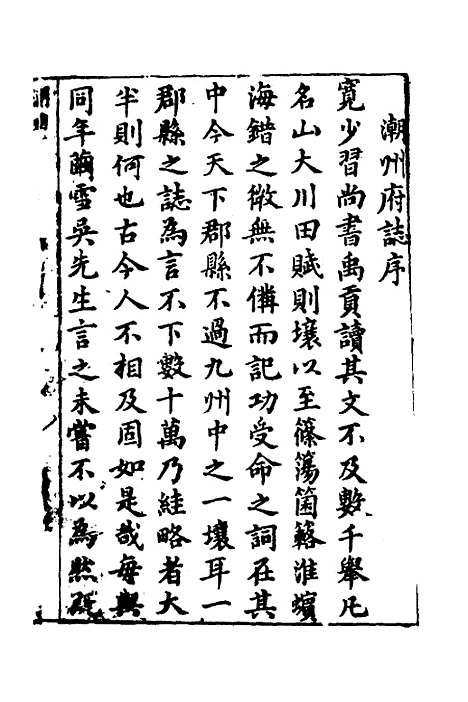 潮州府誌序
寬少習尚書禹貢讀其文不及數千舉凡
名山大川田賦則壤以至篠簜箘簵淮蠙
海錯之微無不備而記功受命之詞在其
中今天下郡縣不過九州中之一壤耳一
郡縣之誌為言不下數十萬乃絓略者大
半則何也古今人不相及固如是哉每與
同年繭雪吳先生言之未嘗不以為然